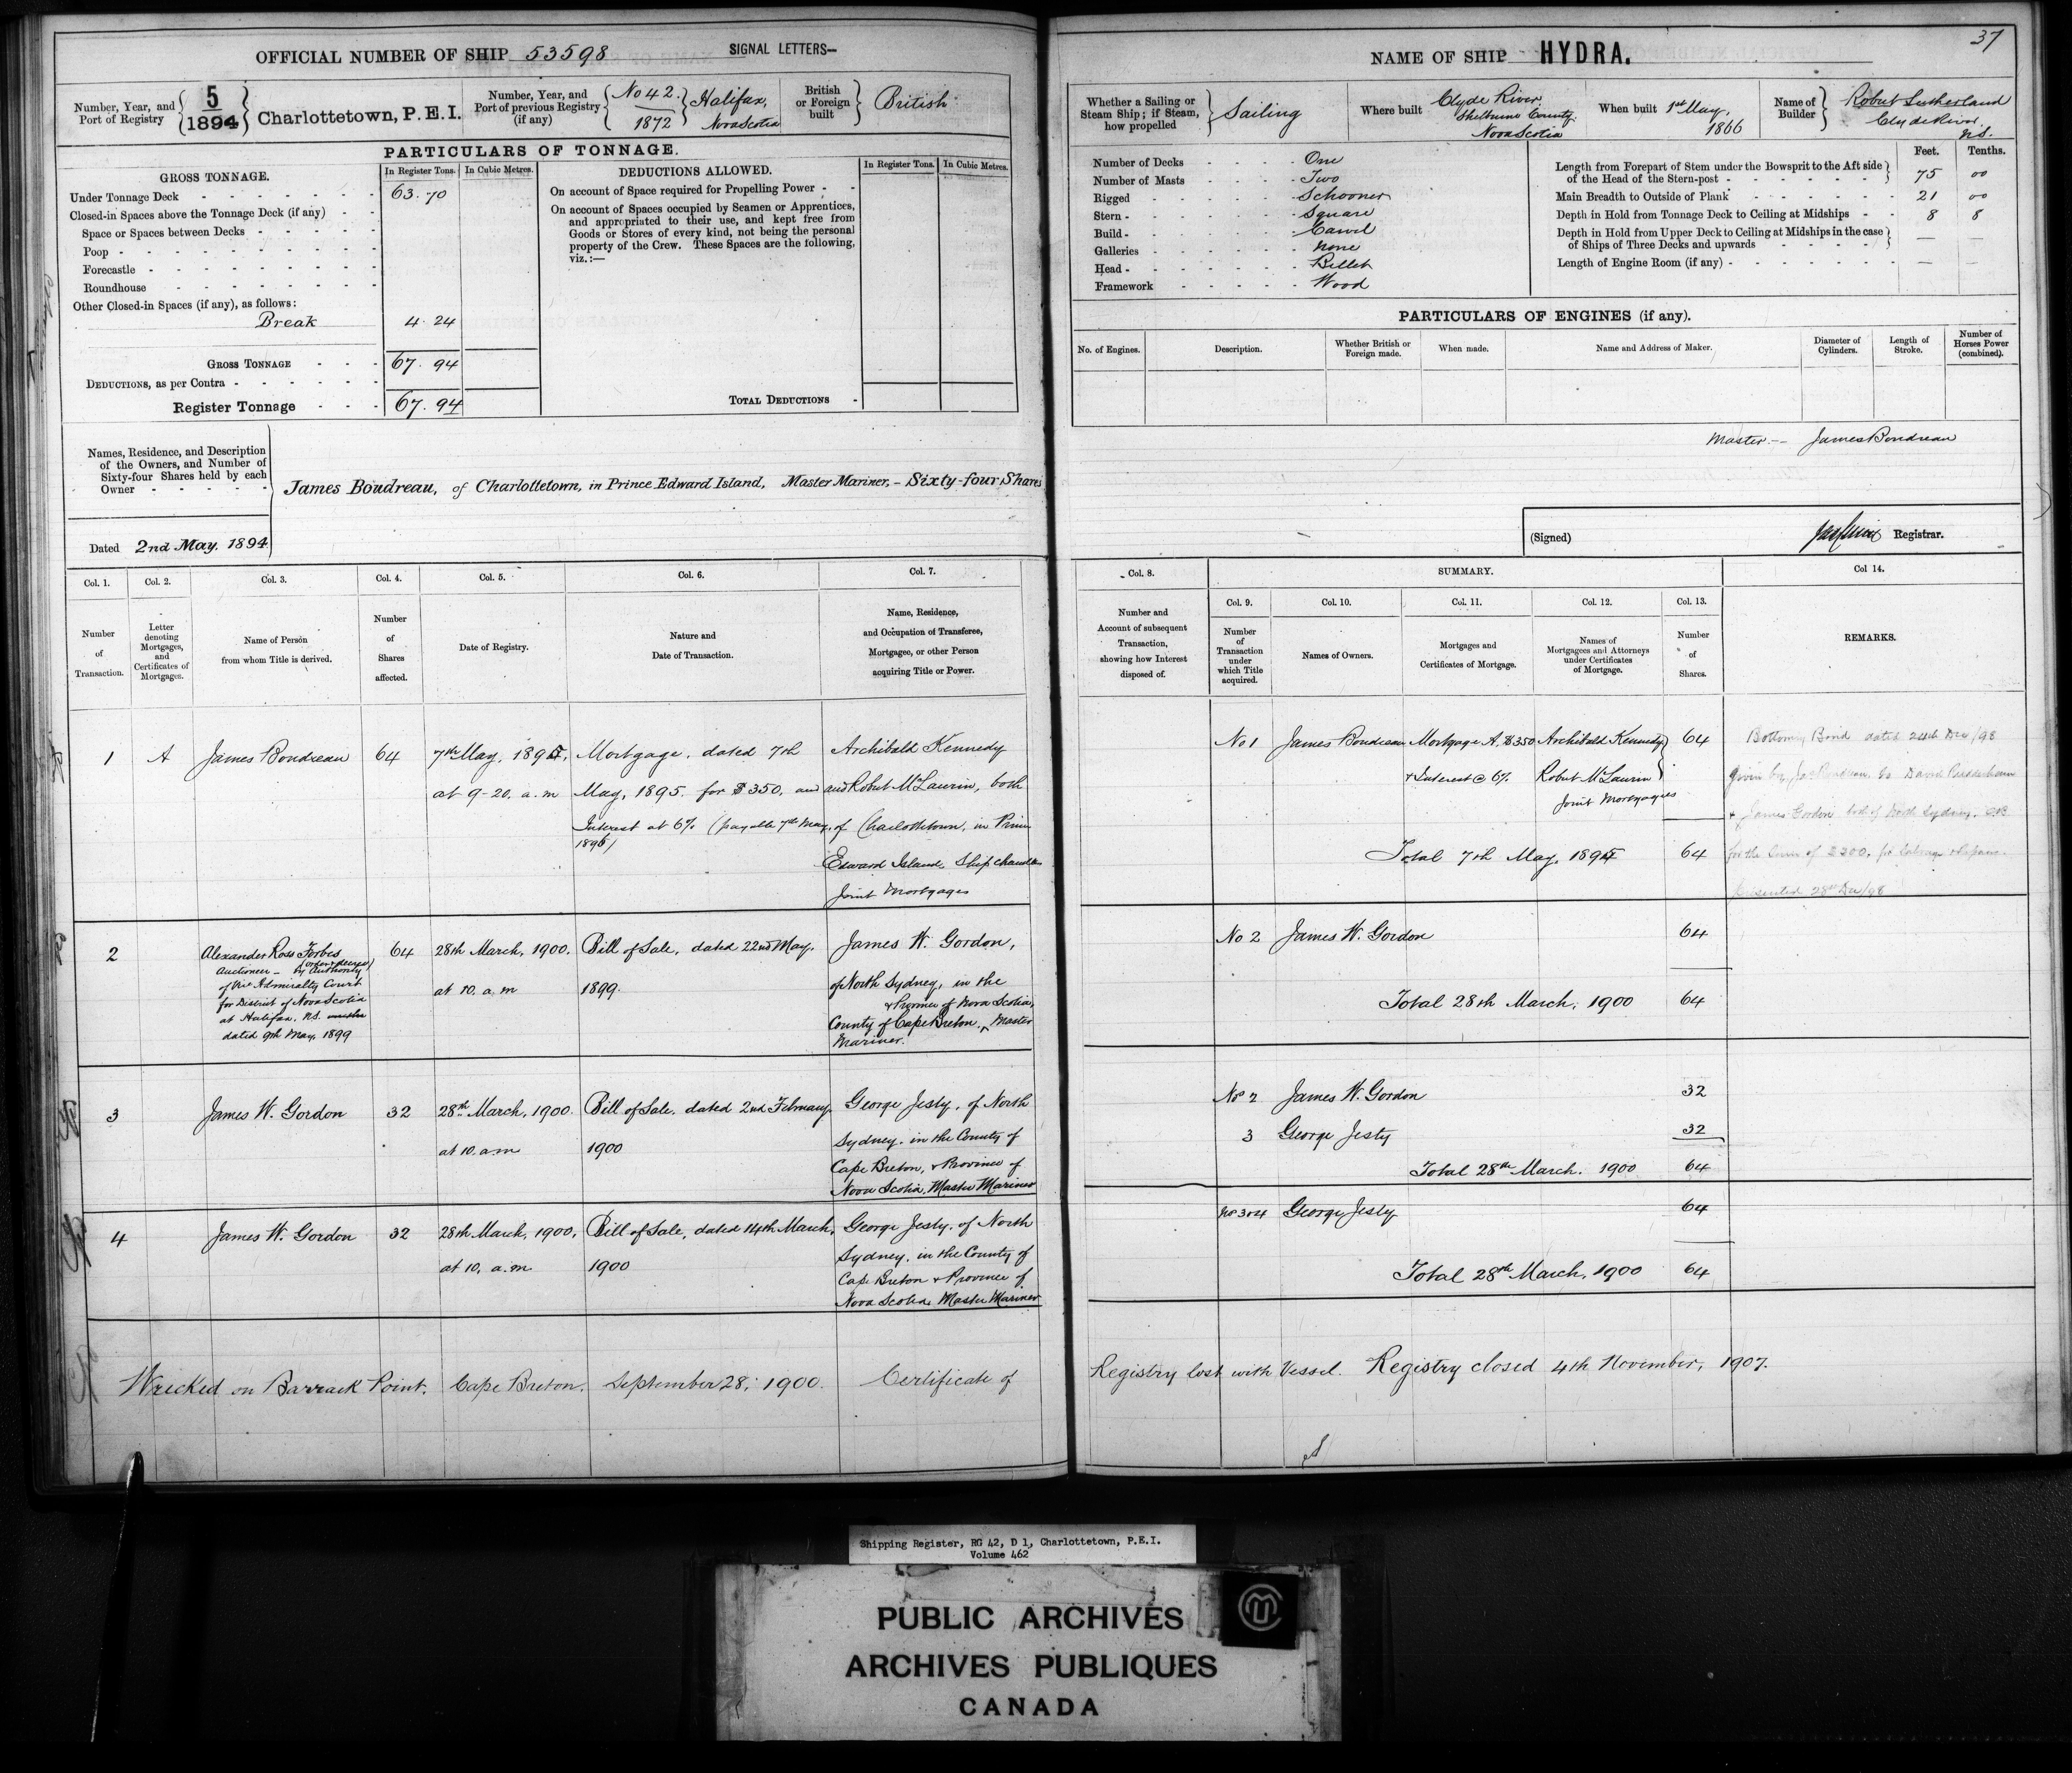 OFFICIAL NUMBER OF SHIP 53598 SIGNAL LETTERS—
Number, Year, and Port of Registry { 5 / 1894 } Charlottetown, P.E.I.
Number, Year, and Port of previous Registry (if any) { No 42. / 1872 } Halifax, Nova Scotia
British or Foreign built } British
PARTICULARS OF TONNAGE.
GROSS TONNAGE. In Register Tons. In Cubic Metres.
Under Tonnage Deck 63.70
Closed-in Spaces above the Tonnage Deck (if any)
Space or Spaces between Decks
Poop
Forecastle
Roundhouse
Other Closed-in Spaces (if any), as follows:
Break 4.24
GROSS TONNAGE 67.94
DEDUCTIONS, as per Contra
Register Tonnage 67.94
DEDUCTIONS ALLOWED. In Register Tons. In Cubic Metres.
On account of Space required for Propelling Power
On account of Spaces occupied by Seamen or Apprentices,
and appropriated to their use, and kept free from
Goods or Stores of every kind, not being the personal
property of the Crew. These Spaces are the following,
viz.:—
TOTAL DEDUCTIONS
Names, Residence, and Description
of the Owners, and Number of
Sixty-four Shares held by each
Owner
James Boudreau, of Charlottetown, in Prince Edward Island, Master Mariner, – Sixty-four Shares
Dated 2nd May. 1894
Col. 1. Number of Transaction.
Col. 2. Letter denoting Mortgages, and Certificates of Mortgages.
Col. 3. Name of Person from whom Title is derived.
Col. 4. Number of Shares affected.
Col. 5. Date of Registry.
Col. 6. Nature and Date of Transaction.
Col. 7. Name, Residence, and Occupation of Transferee, Mortgagee, or other Person acquiring Title or Power.
1 A James Boudreau 64 7th May, 1895, Mortgage, dated 7th Archibald Kennedy
at 9-20. a.m May, 1895. for $350, and and Robert McLaurin, both
Interest at 6% (payable 7th May, of Charlottetown, in Prince
Edward Island, Ship chandlers
Joint Mortgages
2 Alexander Ross Forbes 64 28th March, 1900. Bill of Sale, dated 22nd May. James W. Gordon,
Auctioneer – by Authority (order & decree)
of Vice Admiralty Court
for District of Nova Scotia
at Halifax, N.S.
dated 9th May, 1899
at 10. a.m 1899.
of North Sydney, in the
& Province of Nova Scotia,
County of Cape Breton, Master
Mariner.
3 James W. Gordon 32 28th March, 1900. Bill of Sale, dated 2nd February. George Jesty, of North
at 10. a.m 1900 Sydney. in the County of
Cape Breton, & Province of
Nova Scotia, Master Mariner
4 James W. Gordon 32 28th March, 1900, Bill of Sale, dated 14th March, George Jesty, of North
at 10, a.m. 1900 Sydney. in the County of
Cape Breton & Province of
Nova Scotia Master Mariner
Wrecked on Barrack Point. Cape Breton. September 28, 1900. Certificate of
37
NAME OF SHIP HYDRA.
Whether a Sailing or Steam Ship; if Steam, how propelled } Sailing
Where built Clyde River Shelburne County. Nova Scotia
When built 1st May, 1866
Name of Builder } Robert Sutherland Clyde River N.S.
Number of Decks One
Number of Masts Two
Rigged Schooner
Stern Square
Build Carvel
Galleries None
Head Billet
Framework Wood
Feet. Tenths.
Length from Forepart of Stem under the Bowsprit to the Aft side of the Head of the Stern-post 75 00
Main Breadth to Outside of Plank 21 00
Depth in Hold from Tonnage Deck to Ceiling at Midships 8 8
Depth in Hold from Upper Deck to Ceiling at Midships in the case of Ships of Three Decks and upwards — —
Length of Engine Room (if any) — —
PARTICULARS OF ENGINES (if any).
No. of Engines. Description. Whether British or Foreign made. When made. Name and Address of Maker. Diameter of Cylinders. Length of Stroke. Number of Horses Power (combined).
Master – James Boudreau
(Signed) Registrar.
Col. 8. Number and Account of subsequent Transaction, showing how Interest disposed of.
SUMMARY.
Col. 9. Number of Transaction under which Title acquired.
Col. 10. Names of Owners.
Col. 11. Mortgages and Certificates of Mortgage.
Col. 12. Names of Mortgagees and Attorneys under Certificates of Mortgage.
Col. 13. Number of Shares.
Col 14. REMARKS.
No 1 James Boudreau Mortgage A. $350 Archibald Kennedy 64
& Interest @ 6% Robert McLaurin
Joint Mortgages
Total 7th May, 1895 64
Bottomry Bond dated 24th Dec/98
given by Jas Boudreau to David
& James Gordon both of North Sydney, C.B
for the sum of $300, for Salvage & Repairs.
28th Dec/98
No 2 James W. Gordon 64
Total 28th March, 1900 64
No 2 James W. Gordon 32
3 George Jesty 32
Total 28th March. 1900 64
No 3&4 George Jesty 64
Total 28th March, 1900 64
Registry lost with Vessel. Registry closed 4th November, 1907.
Shipping Register, RG 42, D 1, Charlottetown, P.E.I.
Volume 462
PUBLIC ARCHIVES
ARCHIVES PUBLIQUES
CANADA